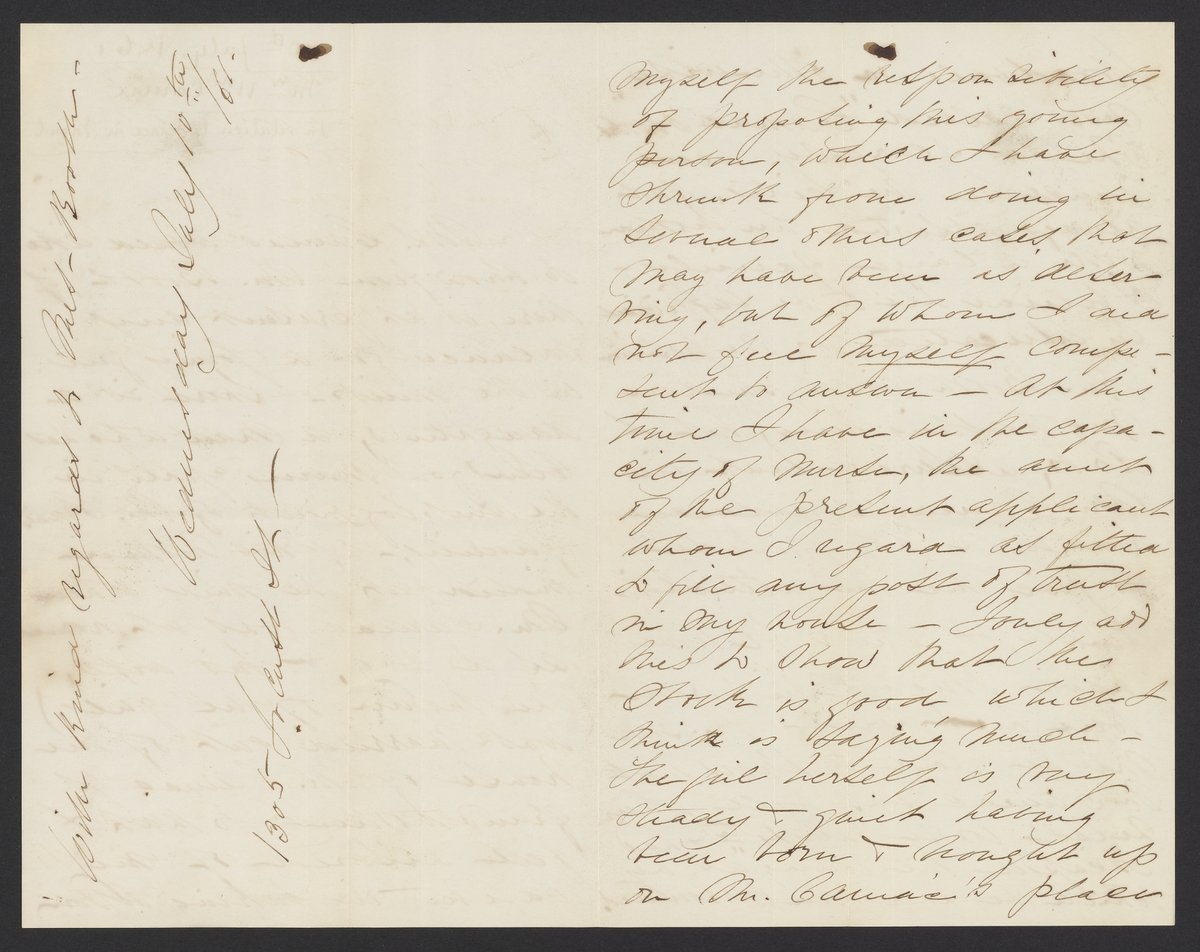 With kind regards to Mrs- Booth-
Wednesday July 10th
/61.
1305 Locust St-
Myself the responsibility
of proposing this young
person, which I have
shrunk from doing in
several others cases that
may have been as deser-
ving, but of whom I did
not feel myself compe-
tent to answer - At this
time I have in the capa-
city of Nurse, the aunt
of the present applicant
whom I regard as fitted
to fill any post of trust
in my house - I only add
this to show that the
stock is good which I
think is saying much -
The girl herself is very
steady & quiet having
been born & brought up
on Mr. Camac's place